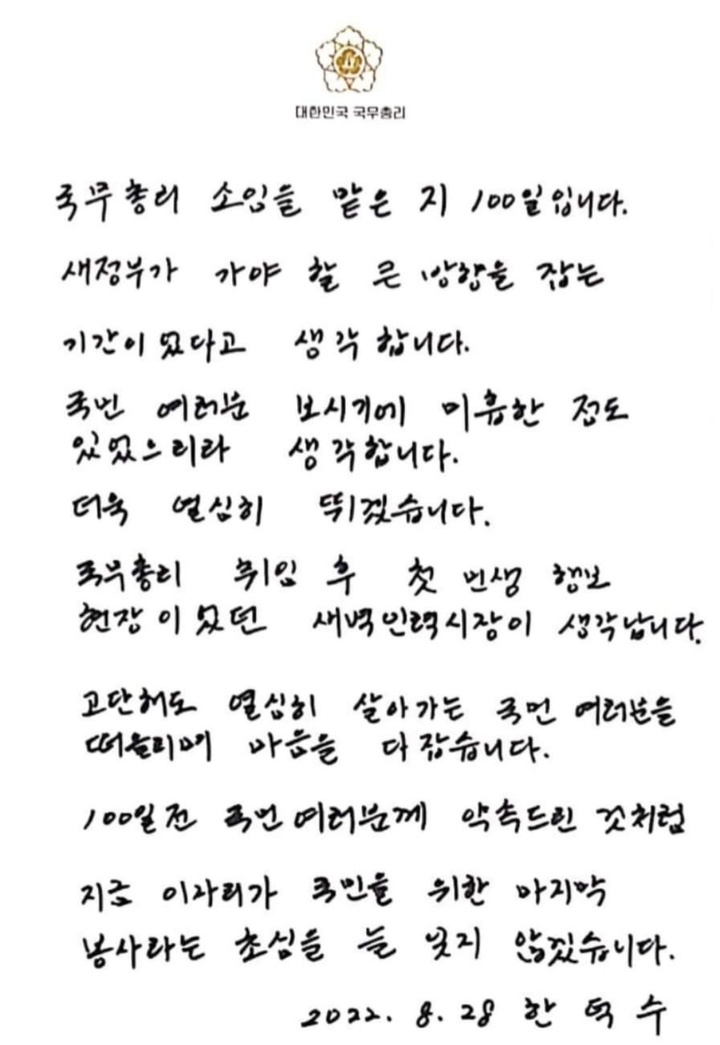 대한민국 국무총리
국무총리 소임을 맡은 지 100일입니다.
새정부가 가야 할 큰 방향을 잡는
기간이었다고 생각합니다.
국민 여러분 보시기에 미흡한 점도
있었으리라 생각합니다.
더욱 열심히 뛰겠습니다.
국무총리 취임 후 첫 민생 행보
현장이었던 새벽인력시장이 생각납니다.
고단해도 열심히 살아가는 국민 여러분을
떠올리며 마음을 다잡습니다.
100일전 국민여러분께 약속드린 것처럼
지금 이자리가 국민을 위한 마지막
봉사라는 초심을 늘 잊지 않겠습니다.
2022. 8. 28 한덕수